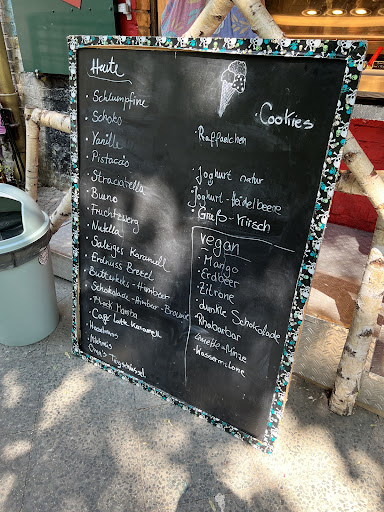 Heute
Schlumpfine
Schoko
Vanille
Pistaccio
Straciatella
Bueno
Fruchtzwerg
Nutella
Salziges Karamell
Erdnuss Brezel
Butterkeks - Himbeer
Schokolade - Himbeer - Brownie
Black Mamba
Café Latte Karamell
Haselnuss
Oma's
Cookies
Raffaelchen
Joghurt natur
Joghurt - Heidelbeere
Grieß - Kirsch
vegan
Mango
Erdbeer
Zitrone
dunkle Schokolade
Rhabarber
Limette - Minze
Wassermelone